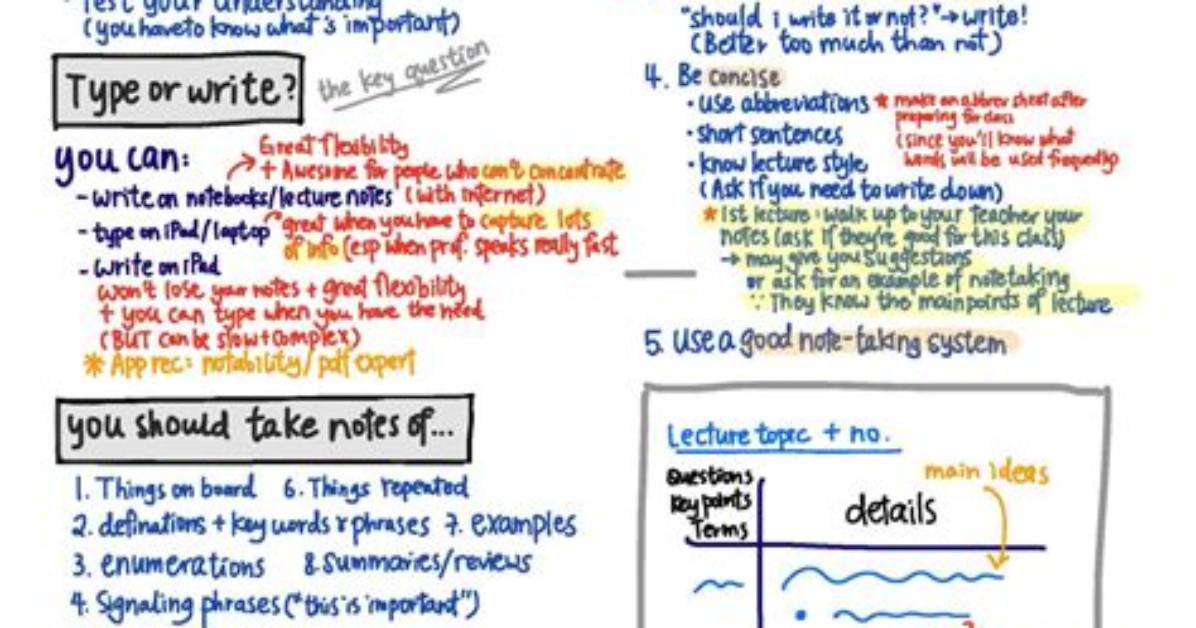 Test your understanding
(you have to know what's important)
Type or write?
the key question
you can:
Great flexibility
+ Awesome for people who can't concentrate
(with internet)
- write on notebooks/lecture notes
- type on iPad/laptop
great when you have to capture lots
of info (esp when prof. speaks really fast
- write on iPad
won't lose your notes + great flexibility
+ you can type when you have the need
(BUT can be slow + complex)
* App rec: notability/pdf expert
you should take notes of...
1. Things on board
2. definations + key words & phrases
3. enumerations
4. Signaling phrases ("this is important")
6. Things repeated
7. examples
8. Summaries/reviews
"should i write it or not?" → write!
(Better too much than not)
4. Be concise
• use abbreviations
* make an abbrev sheet after
preparing for class
(since you'll know what
words will be used frequently)
• short sentences
• know lecture style
(Ask if you need to write down)
* 1st lecture: walk up to your teacher your
notes (ask if they're good for this class)
→ may give you suggestions
or ask for an example of notetaking
∵ They know the main points of lecture
5. use a good note-taking system
Lecture topic + no.
Questions
Key points
Terms
details
main ideas